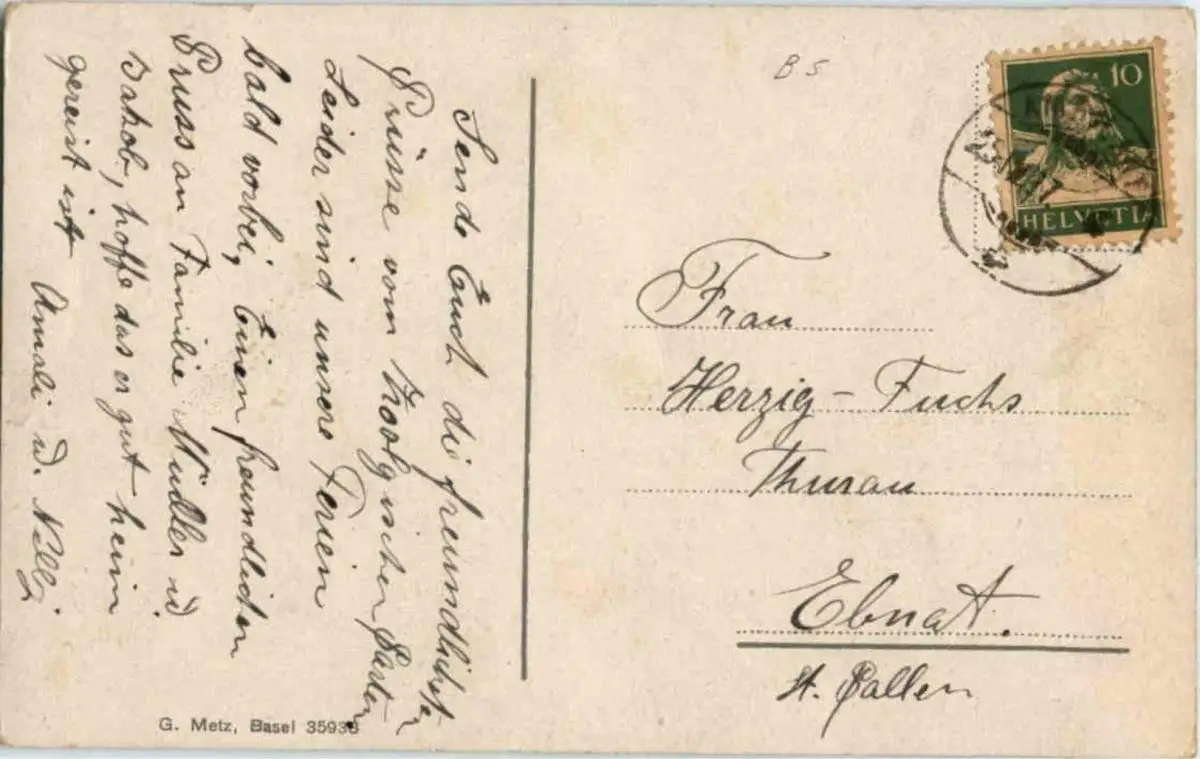 Sende Euch die freundlichsten
Grüsse vom Zoologischen Garten
Leider sind unsere Ferien
bald vorbei, Einen freundlichen
Gruss an Familie Müller u.
Jakob, hoffe das er gut heim
gereist ist Amali u. Nelly
B S
10
HELVETIA
Frau
Herzig - Fuchs
Thurau
Ebnat.
St. Gallen
G. Metz, Basel 35938